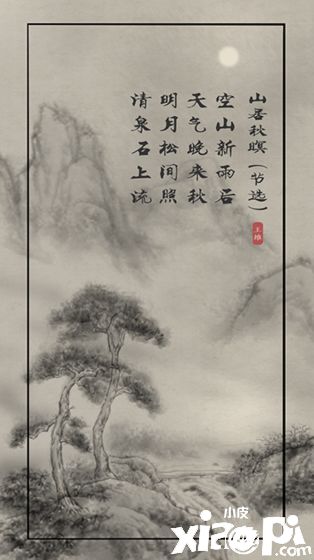 山居秋暝(节选)
王维
空山新雨后
天气晚来秋
明月松间照
清泉石上流
小皮
xiaopi
.com